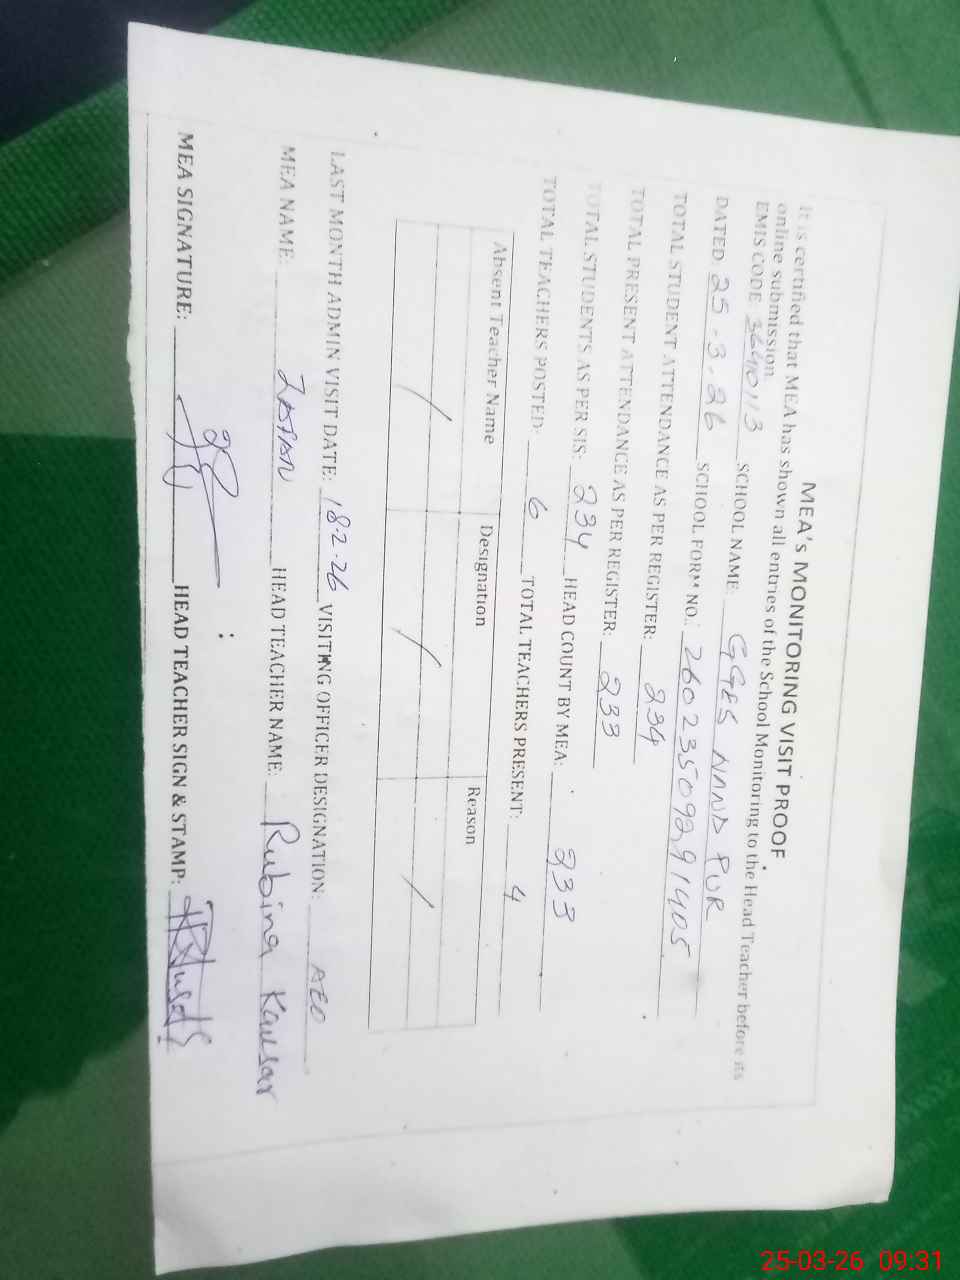 MEA's MONITORING VISIT PROOF
It is certified that MEA has shown all entries of the School Monitoring to the Head Teacher before its
online submission
EMIS CODE 36410113 SCHOOL NAME: GGES NAND PUR
DATED 25-3.26 SCHOOL FORM NO.: 26023509291405
TOTAL STUDENT ATTENDANCE AS PER REGISTER: 234
TOTAL PRESENT ATTENDANCE AS PER REGISTER: 233
TOTAL STUDENTS AS PER SIS: 234 HEAD COUNT BY MEA: 233
TOTAL TEACHERS POSTED: 6 TOTAL TEACHERS PRESENT: 4
Absent Teacher Name Designation Reason
/ / /
LAST MONTH ADMIN VISIT DATE: 18-2-26 VISITING OFFICER DESIGNATION: AEO
MEA NAME: HEAD TEACHER NAME: Rubina Kausar
MEA SIGNATURE: HEAD TEACHER SIGN & STAMP:
25-03-26 09:31